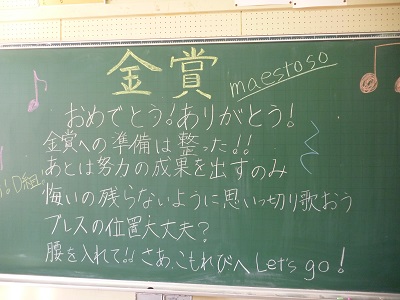 金賞 maestoso
おめでとう!ありがとう!
金賞への準備は整った!!
あとは努力の成果を出すのみ
悔いの残らないように思いっ切り歌おう
ブレスの位置大丈夫?
腰を入れて!!さあ、こもれびへLet's go!
D組